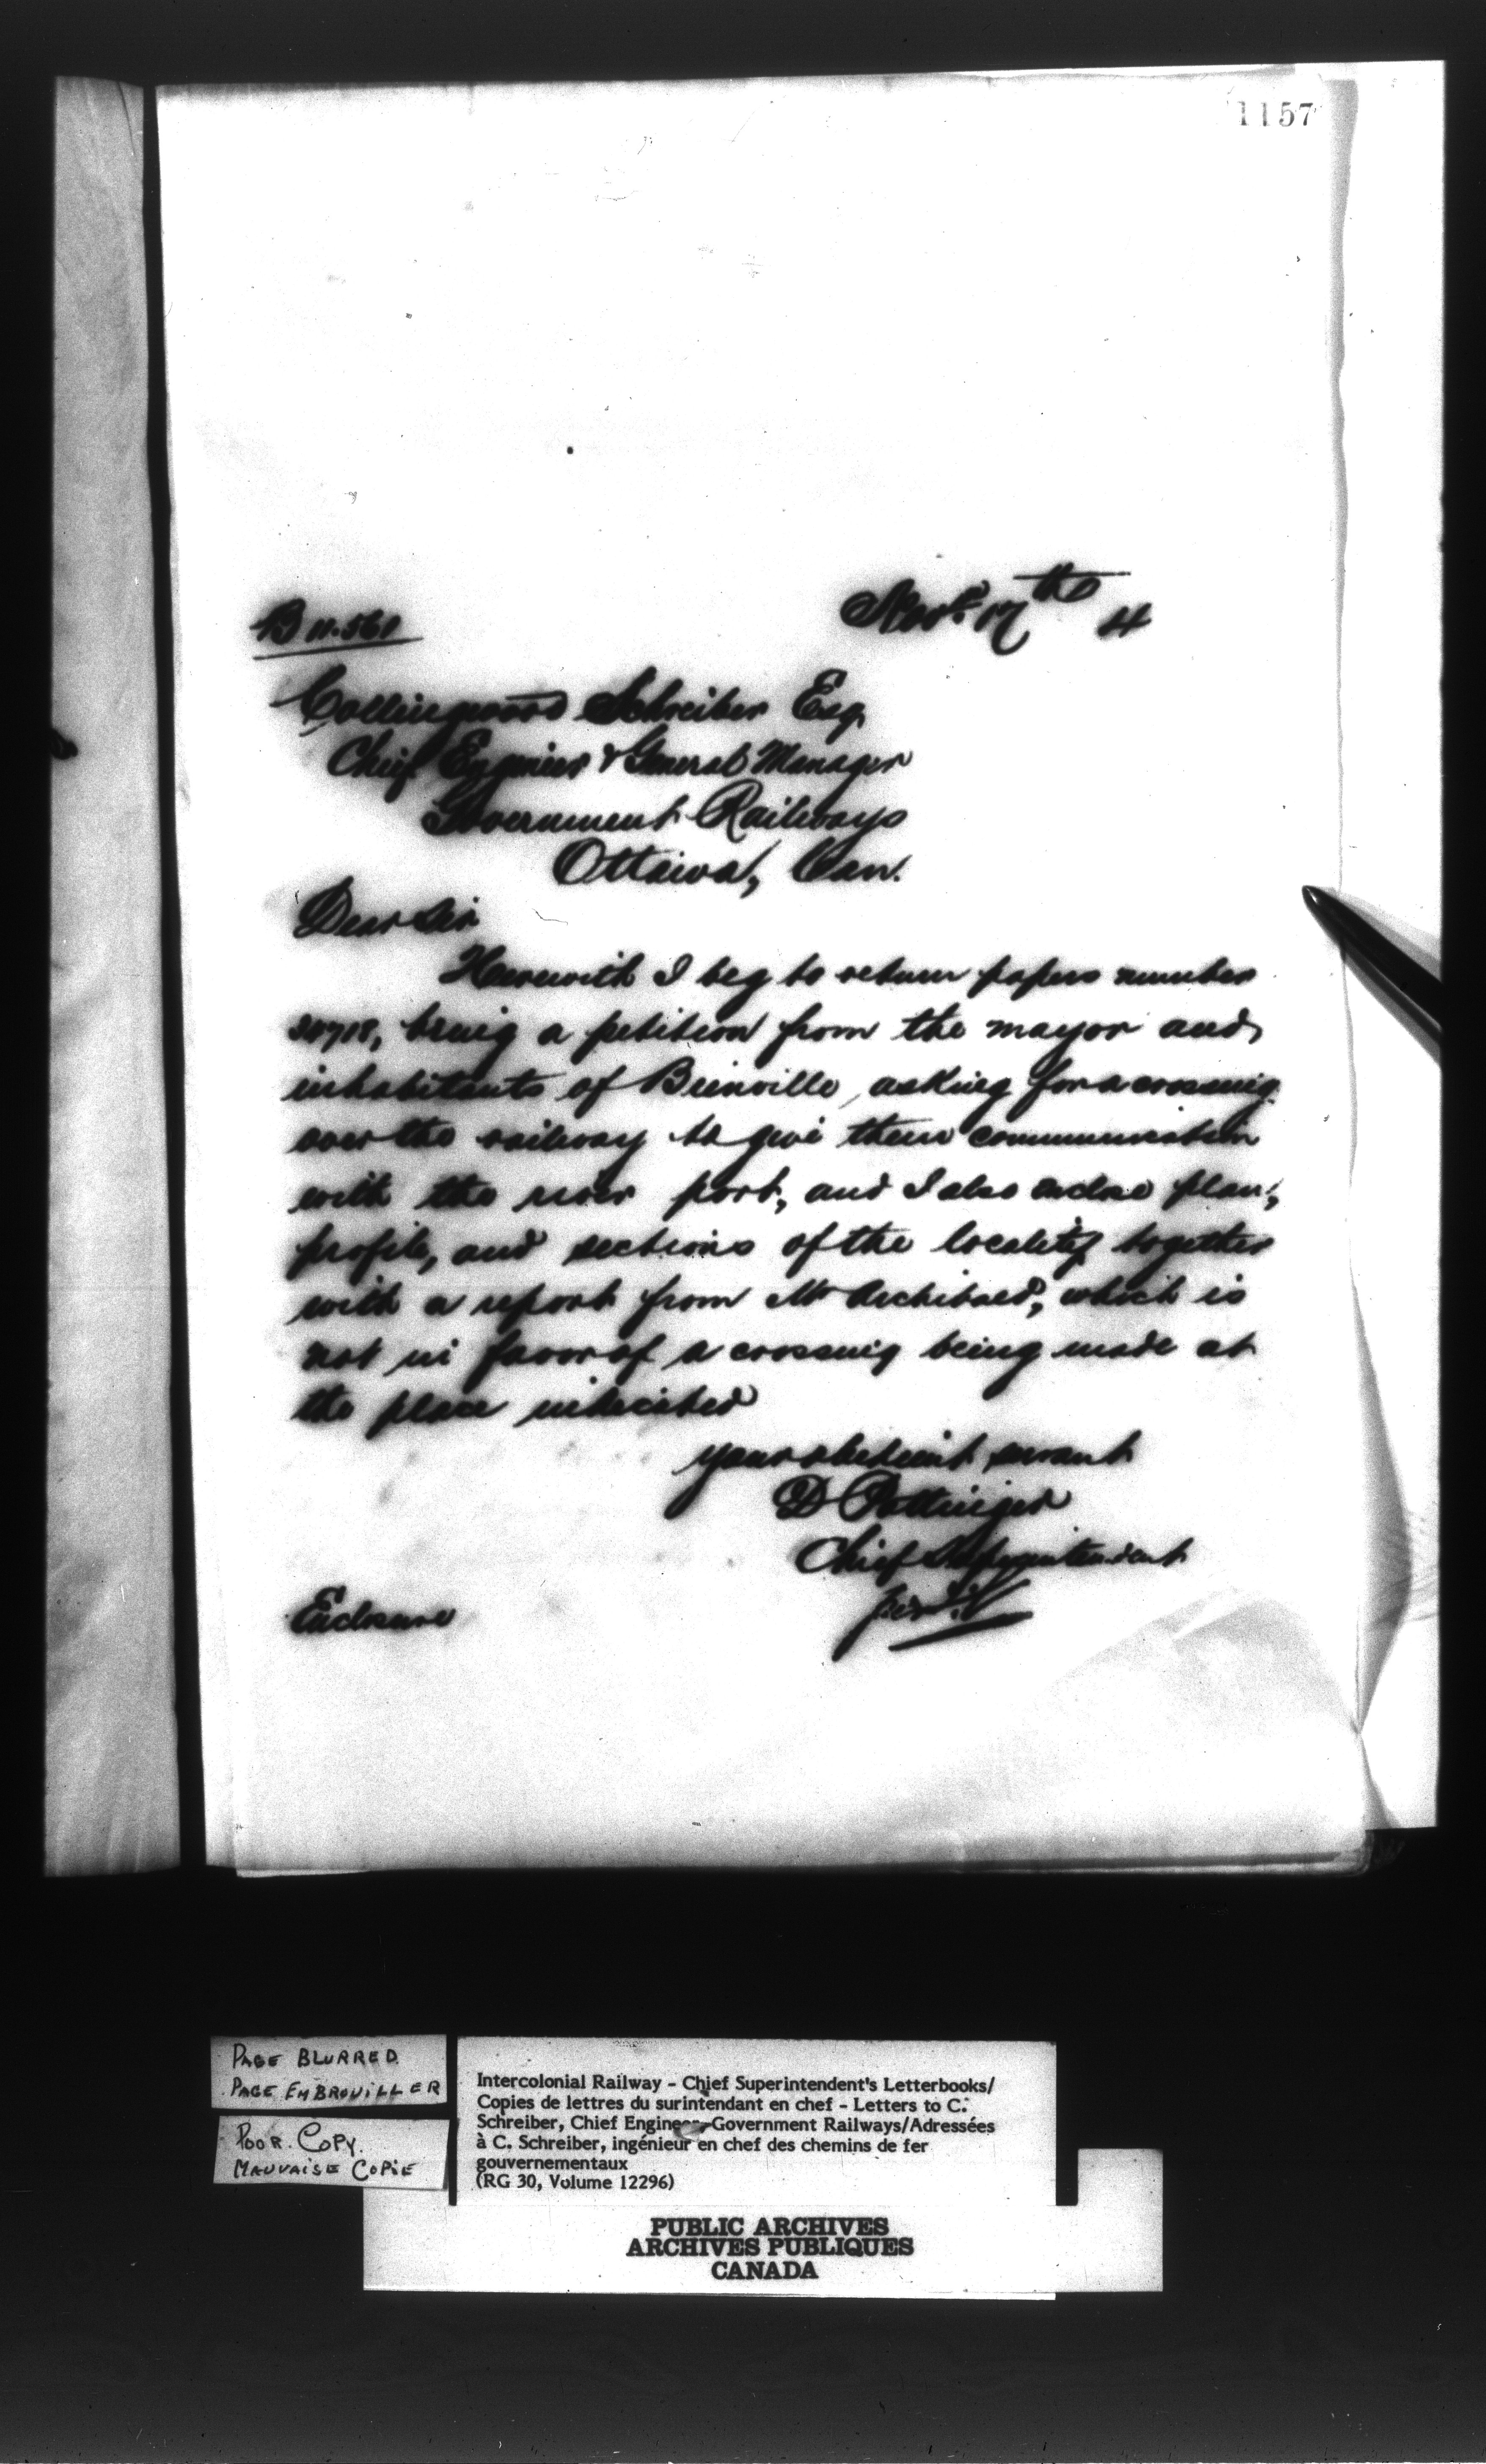 1157
Novr 17th 4
B 11.561
Collingwood Schreiber Esq.
Chief Engineer & General Manager
Government Railways
Ottawa, Can.
Dear Sir
Herewith I beg to return papers number
being a petition from the mayor and
inhabitants of Bienville, asking for a crossing
over the railway to give them communication
with the river port, and I also enclose plan,
profile, and sections of the locality together
with a report from Mr Archibald, which is
not in favor of a crossing being made at
the place indicated
Your obedient servant
D Pottinger
Chief Superintendent
per
Enclosure
PAGE BLURRED.
PAGE EMBROUILLER
POOR. COPY.
MAUVAISE COPIE
Intercolonial Railway - Chief Superintendent's Letterbooks/
Copies de lettres du surintendant en chef - Letters to C.
Schreiber, Chief Engineer-Government Railways/Adressées
à C. Schreiber, ingénieur en chef des chemins de fer
gouvernementaux
(RG 30, Volume 12296)
PUBLIC ARCHIVES
ARCHIVES PUBLIQUES
CANADA